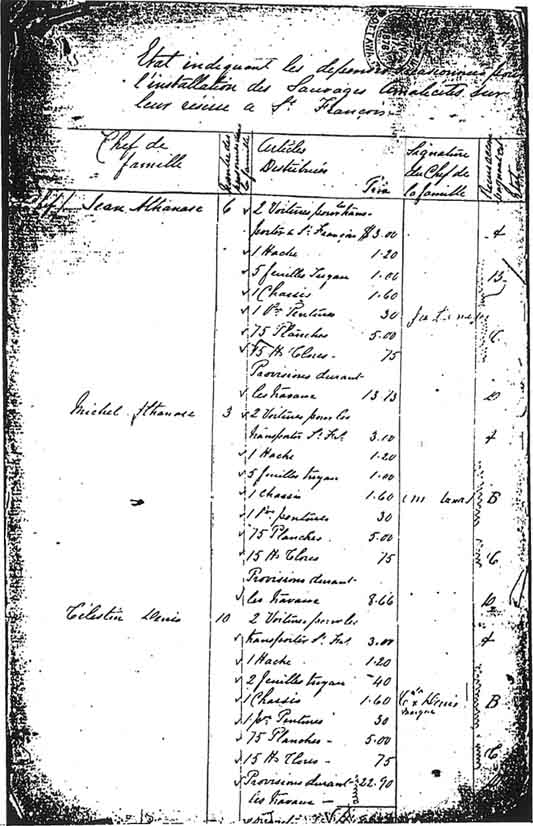 Etat indiquant les depenses pour
l'installation des Sauvages Amalecites sur
leur reserve a St. François
Chef de
famille
Articles
Distribués
Prix
Signature
du Chef de
la famille
Jean Athanase 6 2 Voitures pour les trans-
porter à St. François $3.00
1 Hache 1.20 B
5 feuilles tuyau 1.00
1 Chassis 1.60
1 Pre Pentures 30
75 Planches 5.00 C
15 lbs Clous - 75
Provisions durant-
les travaux 13.73 D
Michel Athanase 3 2 Voitures pour les
transporter St. Frs. 3.00
1 Hache 1.20
5 feuilles tuyau 1.00
1 Chassis 1.60 B
1 Pre pentures 30
75 Planches 5.00
15 lbs Clous 75 C
Provisions durant-
les travaux 8.66 D
Célestin Denis 10 2 Voitures pour les
transporter St. Frs. 3.00
1 Hache 1.20
2 feuilles tuyau - 40
1 Chassis 1.60 Denis B
1 pre Pentures 30
75 Planches - 5.00
15 lbs Clous - 75 C
Provisions durant- 22.90
les travaux -